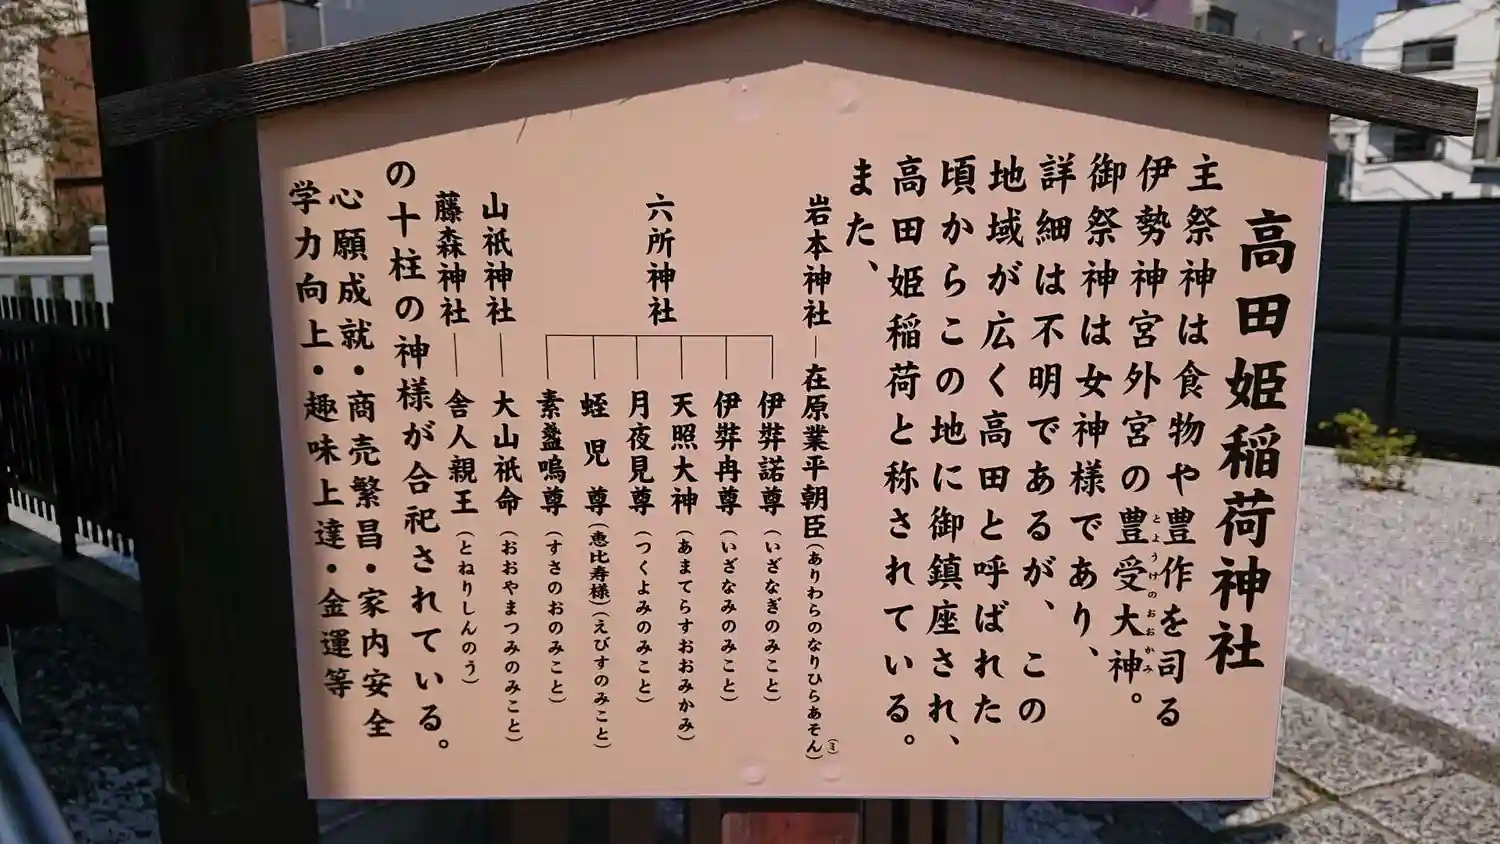 高田姫稲荷神社
主祭神は食物や豊作を司る
伊勢神宮外宮の豊受大神。
とようけのおおかみ
御祭神は女神様であり、
詳細は不明であるが、この
地域が広く高田と呼ばれた
頃からこの地に御鎮座され、
高田姫稲荷と称されている。
また、
岩本神社―在原業平朝臣(ありわらのなりひらあそん)
(ミ)
六所神社
伊弉諾尊(いざなぎのみこと)
伊弉冉尊(いざなみのみこと)
天照大神(あまてらすおおみかみ)
月夜見尊(つくよみのみこと)
蛭児尊(恵比寿様)(えびすのみこと)
素盞嗚尊(すさのおのみこと)
山祇神社―大山祇命(おおやまつみのみこと)
藤森神社―舎人親王(とねりしんのう)
の十柱の神様が合祀されている。
心願成就・商売繁昌・家内安全
学力向上・趣味上達・金運等